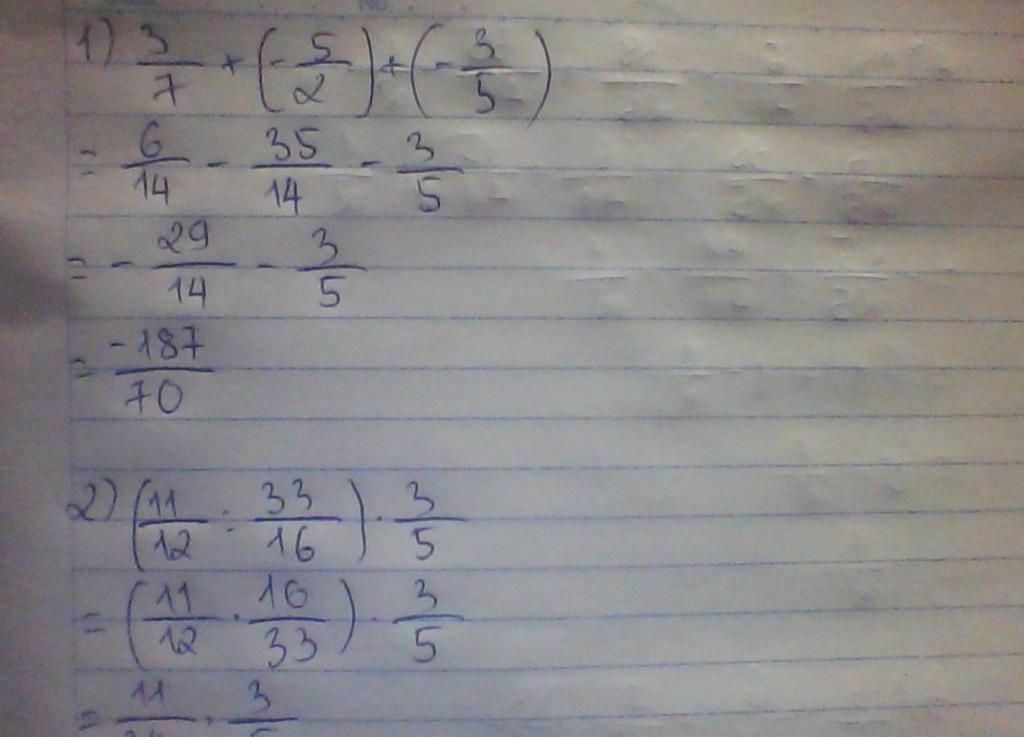 1) 3/7 + (-5/2) + (-3/5)
= 6/14 - 35/14 - 3/5
= - 29/14 - 3/5
= -187/70
2) (11/12 : 33/16) · 3/5
= (11/12 · 16/33) · 3/5
= 11 · 3